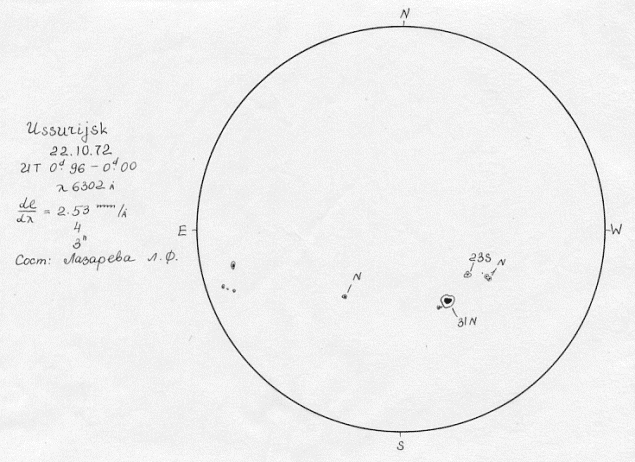 N
Ussurijsk
22.10.72
UT 0ᵈ.96 – 0ᵈ.00
λ 6302 Å
de/dλ = 2.53 mm/Å
4
3ʰ
Сост: Лазарева Л.Ф.
E
W
23S
N
N
31N
S